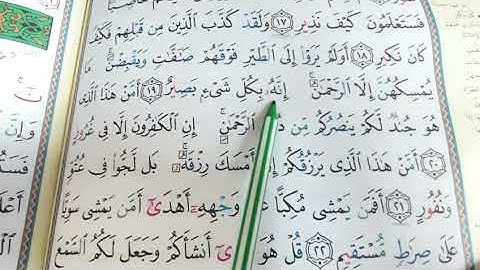 فَسَتَعْلَمُونَ كَيْفَ نَذِيرِ ١٧ وَلَقَدْ كَذَّبَ الَّذِينَ مِن قَبْلِهِمْ فَكَيْفَ
كَانَ نَكِيرِ ١٨ أَوَلَمْ يَرَوْا إِلَى الطَّيْرِ فَوْقَهُمْ صَٰٓفَّٰتٍ وَيَقْبِضْنَ ۚ
يُمْسِكُهُنَّ إِلَّا الرَّحْمَٰنُ ۚ إِنَّهُ بِكُلِّ شَىْءٍ بَصِيرٌ ١٩ أَمَّنْ هَٰذَا الَّذِى
هُوَ جُندٌ لَّكُمْ يَنصُرُكُم مِّن الرَّحْمَٰنِ ۚ إِنِ الْكَٰفِرُونَ إِلَّا فِى غُرُورٍ
٢٠ أَمَّنْ هَٰذَا الَّذِى يَرْزُقُكُمْ إِنْ أَمْسَكَ رِزْقَهُ ۚ بَل لَّجُّوا فِى عُتُوٍّ
وَنُفُورٍ ٢١ أَفَمَن يَمْشِى مُكِبًّا وَجْهِهِ أَهْدَىٰٓ أَمَّن يَمْشِى سَوِيًّا
عَلَىٰ صِرَٰطٍ مُّسْتَقِيمٍ ٢٢ قُلْ هُوَ أَنشَأَكُمْ وَجَعَلَ لَكُمُ السَّمْعَ